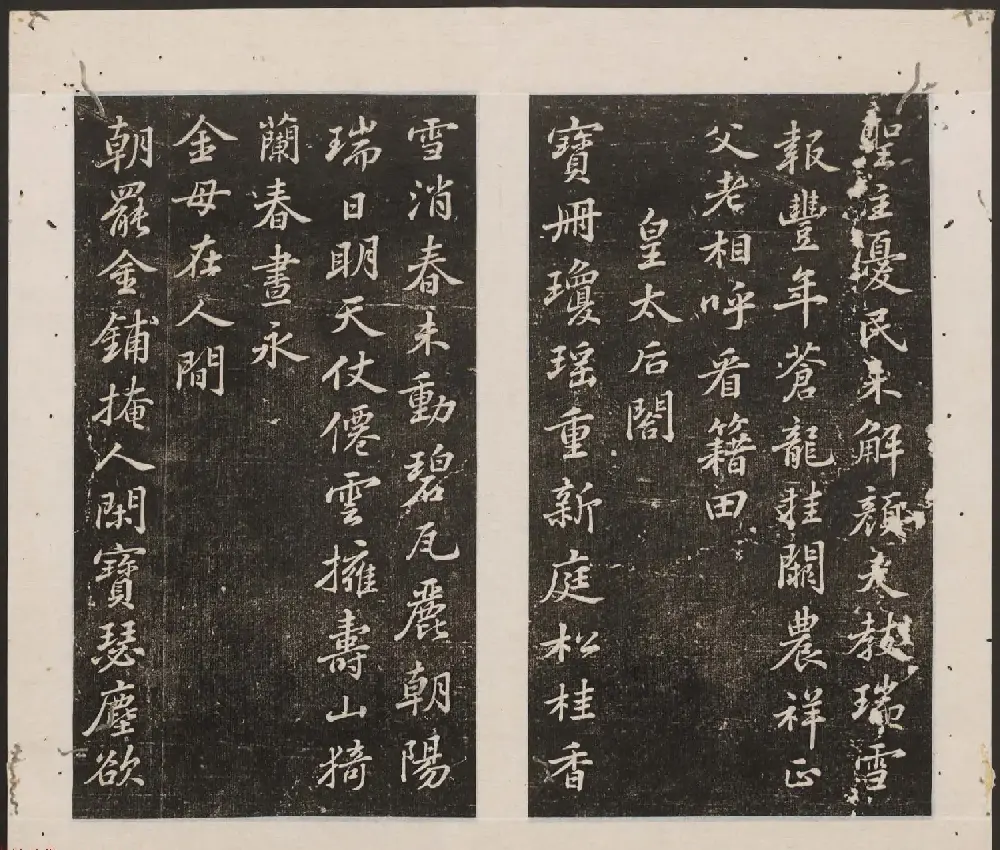 聖主憂民未解顏天教瑞雪
報豐年蒼龍挂闕農祥正
父老相呼看籍田
皇太后閣
寶冊瓊瑤重新庭松桂香
雪消春未動碧瓦麗朝陽
瑞日明天仗僊雲擁壽山猗
蘭春晝永
金母在人間
朝罷金鋪掩人閑寶瑟塵欲